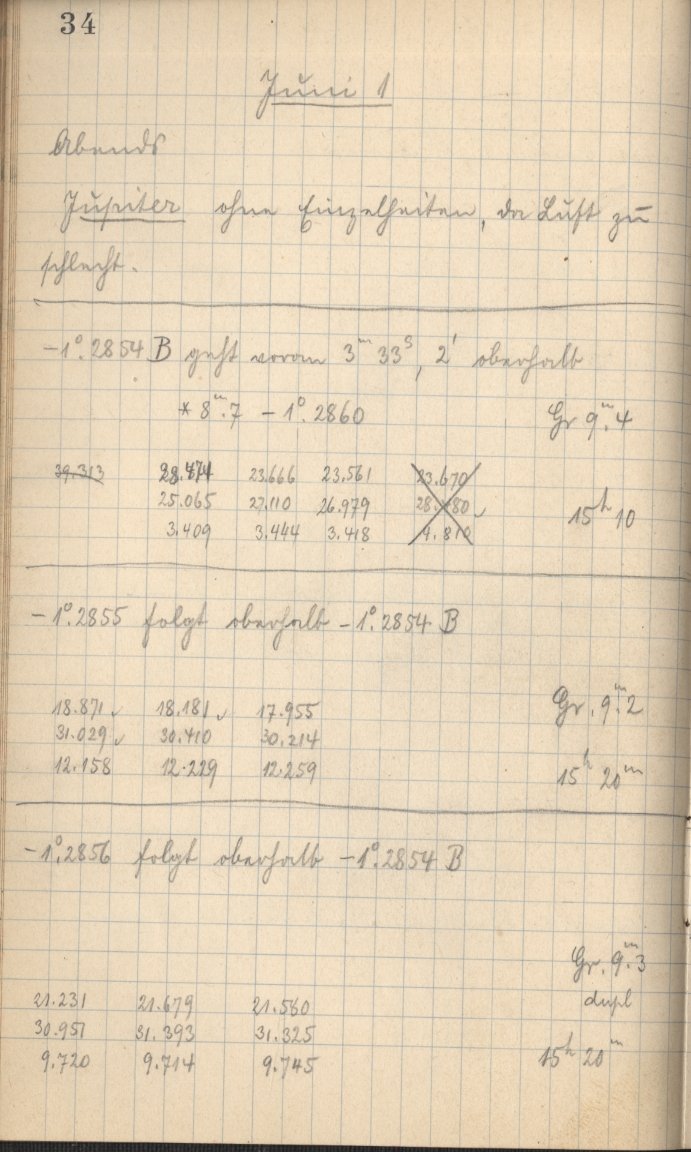 34
Juni 1
Abends
Jupiter ohne Einzelheiten, da Luft zu
schlecht.
-1°.2854 B geht voran 3m 33s, 2' oberhalb
* 8m.7 -1°.2860 Gr 9m.4
39.313 28.474 23.666 23.561 23.670
25.065 27.110 26.979 28.480 ✓ 15h 10
3.409 3.444 3.418 4.810
-1°.2855 folgt oberhalb -1°.2854 B
18.871 ✓ 18.181 ✓ 17.955 Gr. 9m.2
31.029 ✓ 30.410 30.214
12.158 12.229 12.259 15h 20m
-1°.2856 folgt oberhalb -1°.2854 B
Gr. 9m.3
21.231 21.679 21.580 dupl
30.951 31.393 31.325
9.720 9.714 9.745 15h 20m